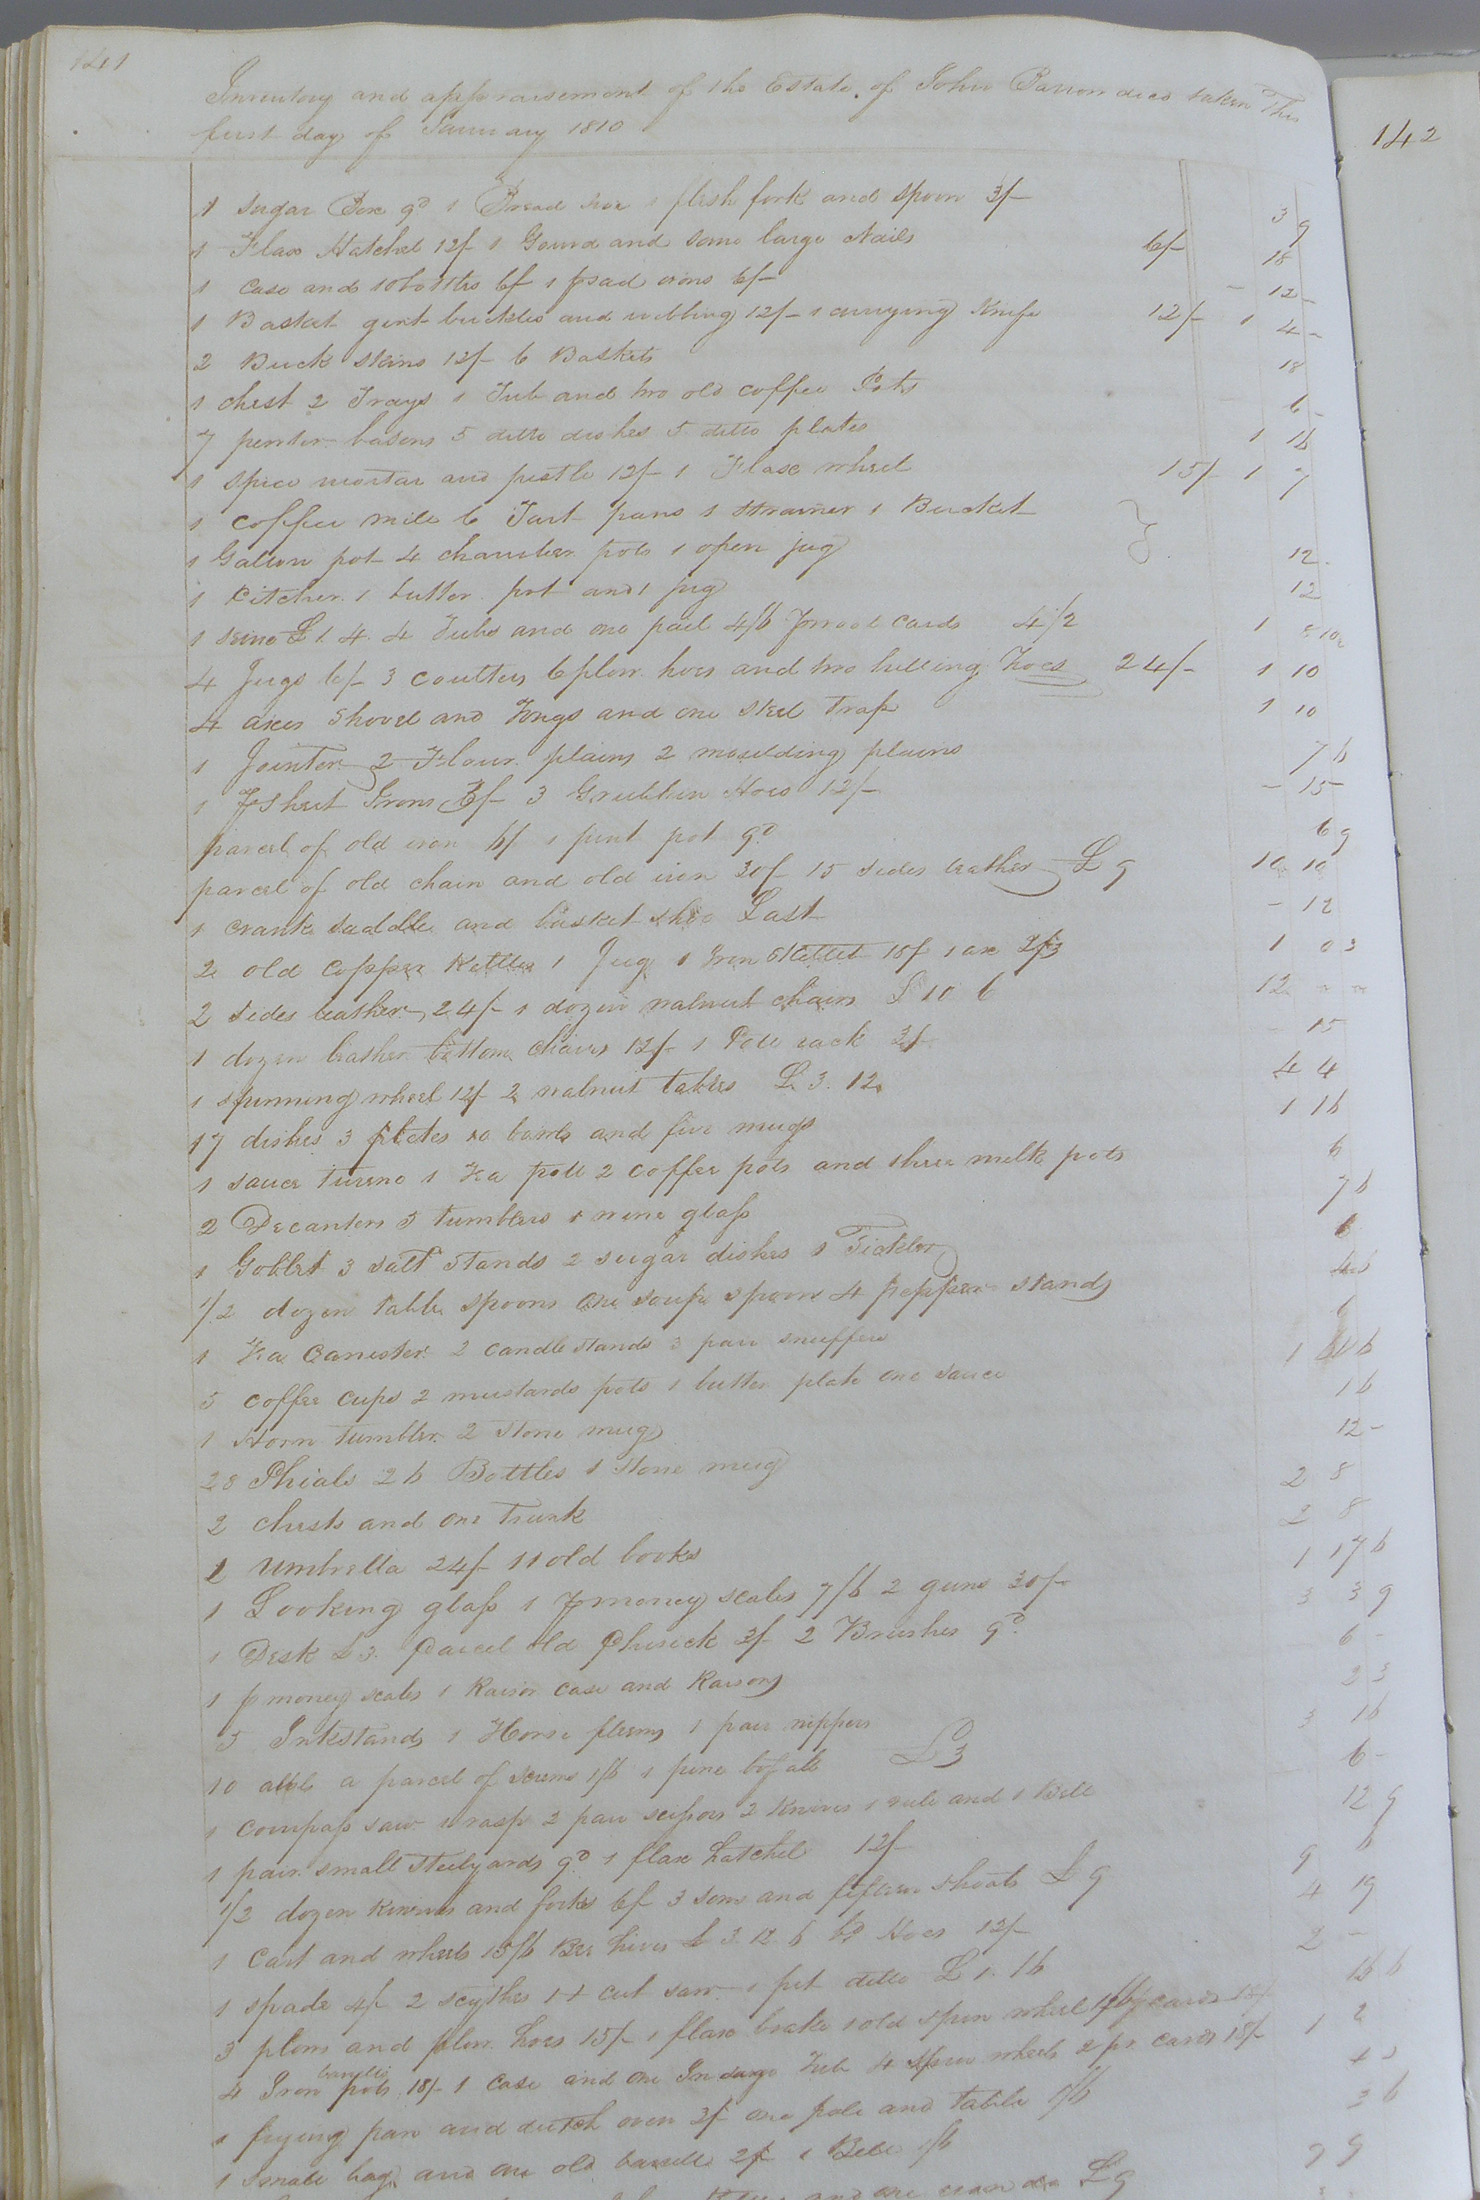 141
Inventory and appraisement of the Estate of John Parron decd taken This
first day of January 1810
142
1 sugar Box 9d 1 Bread 1 flesh fork and spoon 3/- 3 9
1 Flax Hatchel 12/ 1 Gourd and some large Nails 6/- 18
1 case and 10 bottles 6/ 1 p sad irons 6/- - 12 -
1 Basket girt buckles and webbing 12/- 1 currying Knife 12/- 1 4 -
2 Buck skins 12/- 6 Baskets 18
1 chest 2 Trays 1 Tub and two old coffee Pots 6 -
7 pewter basons 5 ditto dishes 5 ditto plates 1 16
1 spice mortar and pestle 12/- 1 Flax wheel 15/- 1 7
1 coffee mill 6 Tart pans 1 strainer 1 Bucket
1 Gallon pot 4 chamber pots 1 open jug 12
1 Pitcher 1 butter pot and 1 jug 12
1 £ 1 4. 4 Tubs and one pail 4/6 p wool cards 4/2 1
4 Jugs 6/- 3 coulters 6 plow hoes and two hilling hoes 24/- 1 10
4 axes shovel and Tongs and one steel trap 1 10
1 Jointer 2 Flour plains 2 moulding plains 7 6
1 p Sheet Irons 3/- 3 Grubbin Hoes 12/- - 15
parcel of old iron 6/ 1 pint pot 9d 6 9
parcel of old chain and old iron 30/ 15 sides leather £ 9 10 10
1 crank saddle and basket shoe Last - 12
2 old copper Kettles 1 Jug 1 Iron Skillet 18/ 1 axe 2/3 1 0 3
2 sides leather 24/- 1 dozen walnut chairs £ 10 6 12
1 dozen leather bottom chairs 12/- 1 Pole rack 3/- 15
1 spinning wheel 12/- 2 walnut tables £ 3. 12 4 4
17 dishes 3 plates 10 bowls and five mugs 1 16
1 sauce tureno 1 Tea pott 2 coffee pots and three melk pots 6
2 Decanters 5 tumblers 1 wine glass 7 6
1 Goblet 3 salt stands 2 sugar dishes 1 Tickler 6
1/2 dozen table spoons one soupe spoon 4 pepper stands
1 Tea Canester 2 candle stands 3 pair snuffers 6
5 coffee cups 2 mustards pots 1 butter plate one sauce 1
1 Horn tumbler 2 stone mugs 1 6
28 Phials 26 Bottles 1 stone mug 12 -
2 chests and one Trunk 2 8
1 umbrella 24/- 11 old books 2 8
1 Looking glass 1 p money scales 7/6 2 guns 30/- 1 17 6
1 Desk £3. parcel old Phisick 3/ 2 Brushes 9d 3 3 9
1 p money scales 1 Raisor case and Raisors 6 -
5 Inkstands 1 Horse fleems 1 pair nippers 2 3
10 a parcel of 1/6 1 pine £3 3 16
1 compass saw 1 rasp 2 pair scissors 2 knives 1 rule and 1 Bell 6 -
1 pair small steelyards 9d 1 flax hatchel 12/- 12 9
1/2 dozen knives and forks 6/ 3 sows and fifteen shoats £ 9 9 6
1 Cart and wheels 15/6 Bee hives £ 3. 12. 6 Hoes 12/- 4 19
1 spade 4/ 2 scythes 1 + cut saw 1 pit ditto £ 1. 16 2 -
3 plows and plow hoes 15/- 1 flax brake 1 old spin wheel
4 Iron pots 18/- 1 case and one Tub 4 spin wheels 2 pr cards 18/- 1
1 frying pan and dutch oven 3/ one pale and table 1/6
1 small bag and one old barrell 2/ 1 Bell 3 6
and one £ 9 9 9